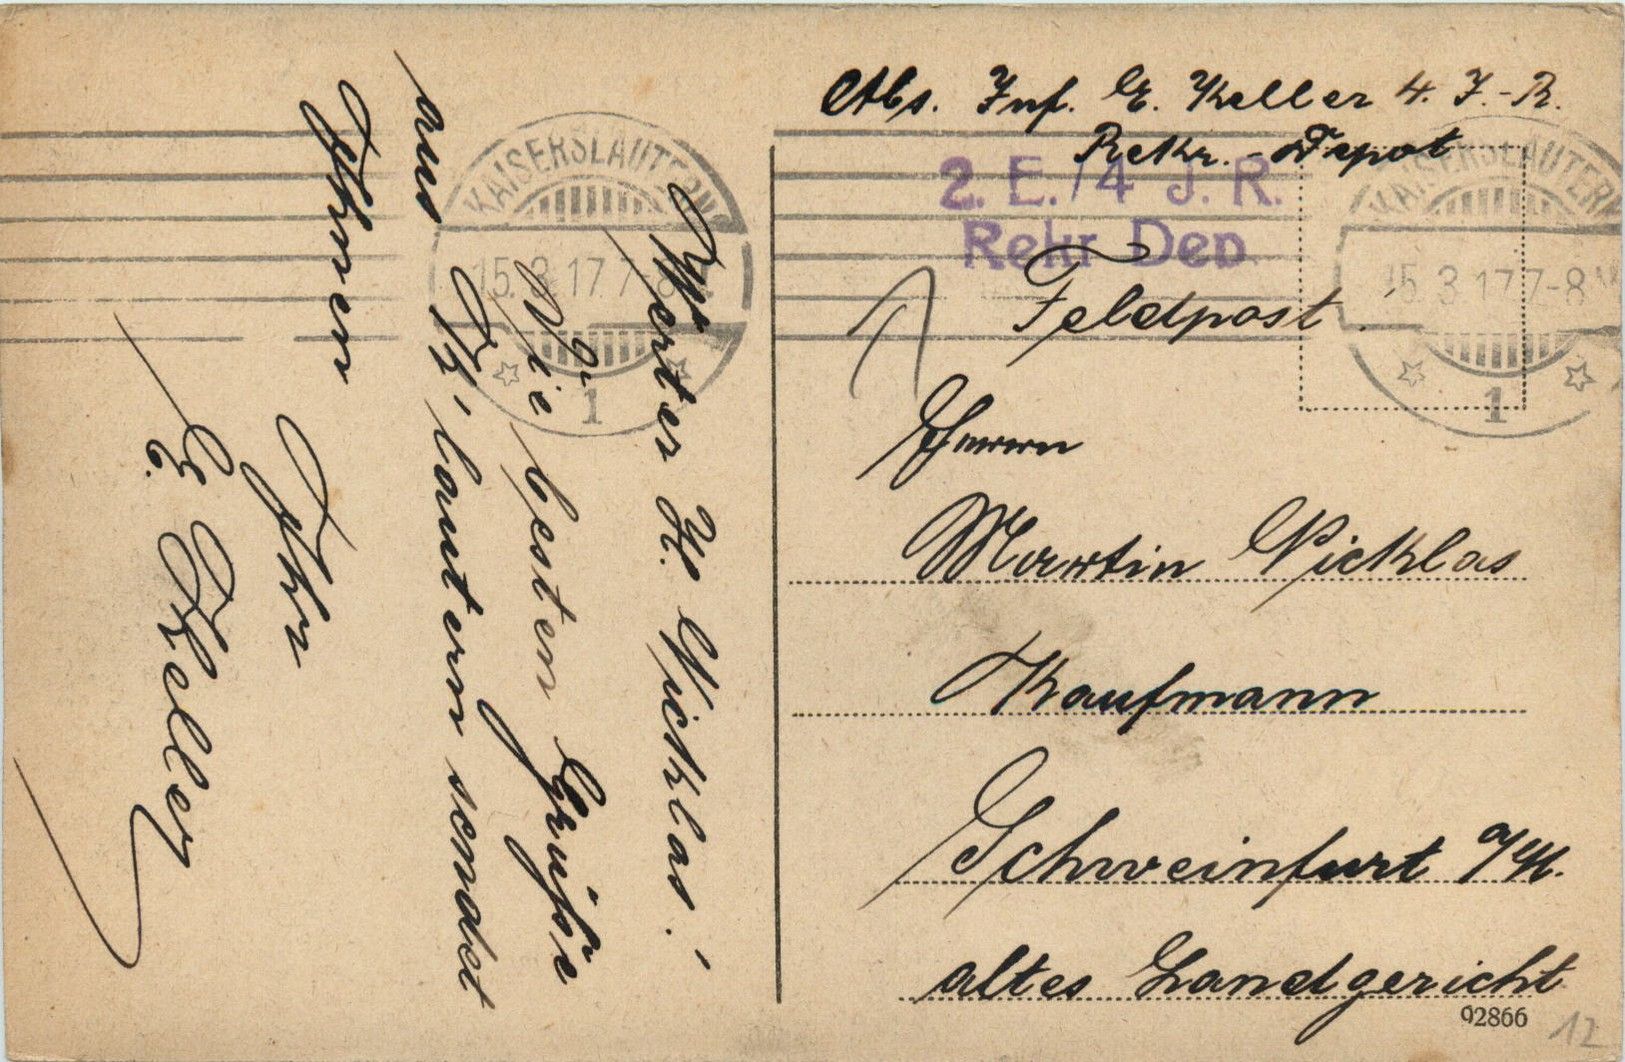 Abs. Inf. E. Keller 4. J.-R.
Rekr.-Depot
2. E./4 J. R.
Rekr Dep
Feldpost.
Herrn
Martin Nicklas
Kaufmann
Schweinfurt a/M.
altes Landgericht
92866
12
KAISERSLAUTERN
15.3.17.7-8
1
KAISERSLAUTERN
15.3.17.7-8V
1
Werter H. Nicklas!
Die besten Grüße
aus K'lautern sendet
Ihnen
Ihr
E. Keller